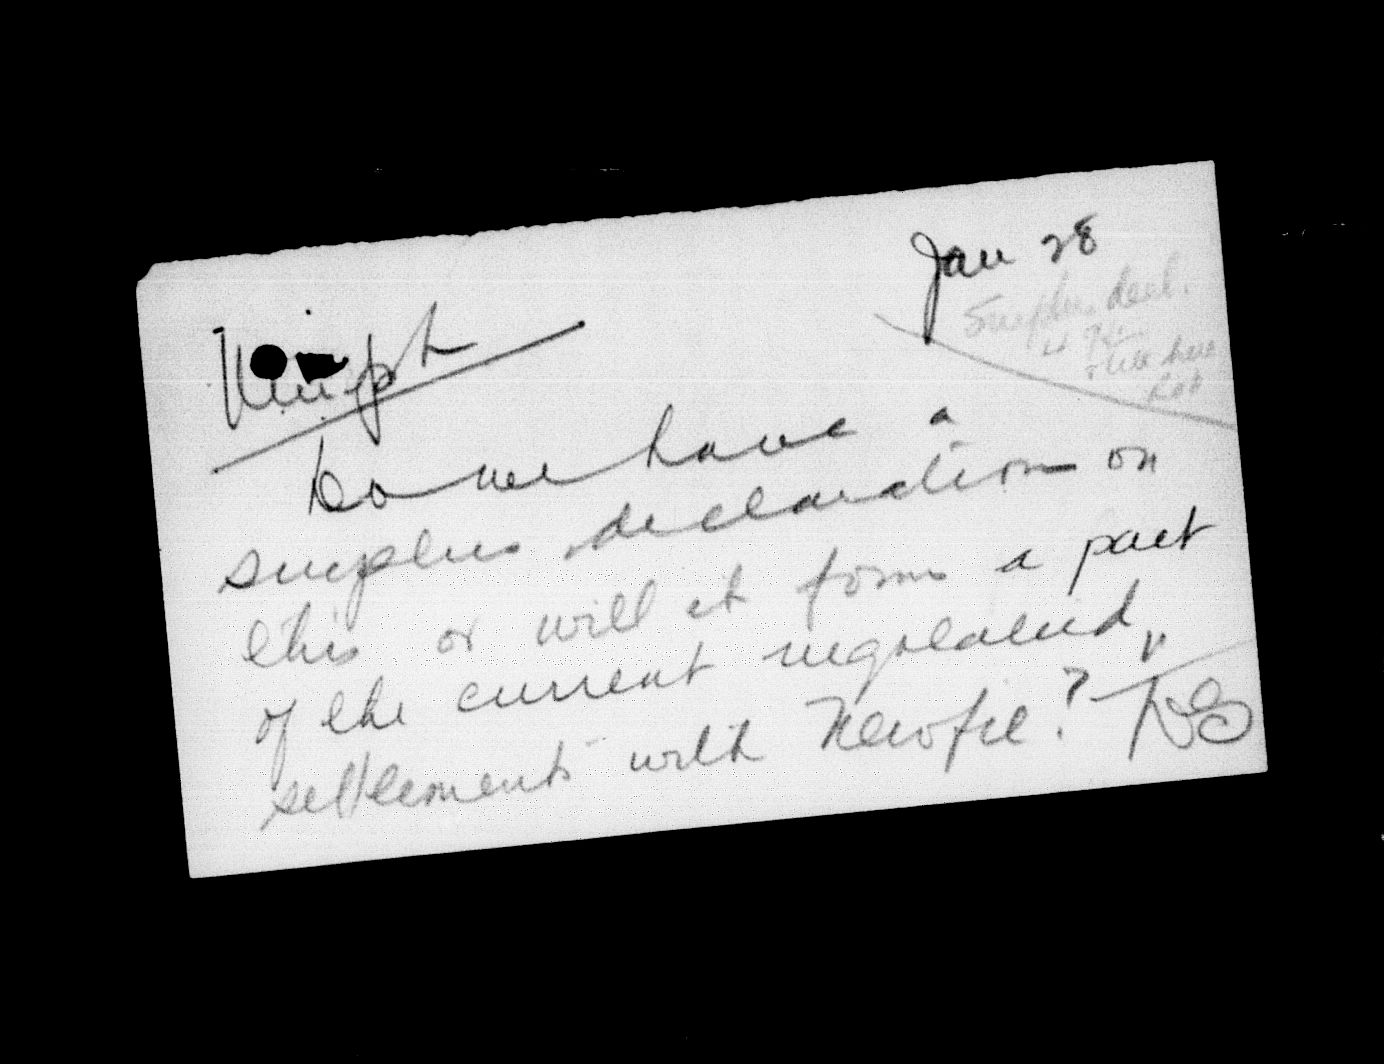 Jan 28
Surplus decl.
Do we have a
surplus declaration on
this or will it form a part
of the current negotiated
settlements with Newfie?